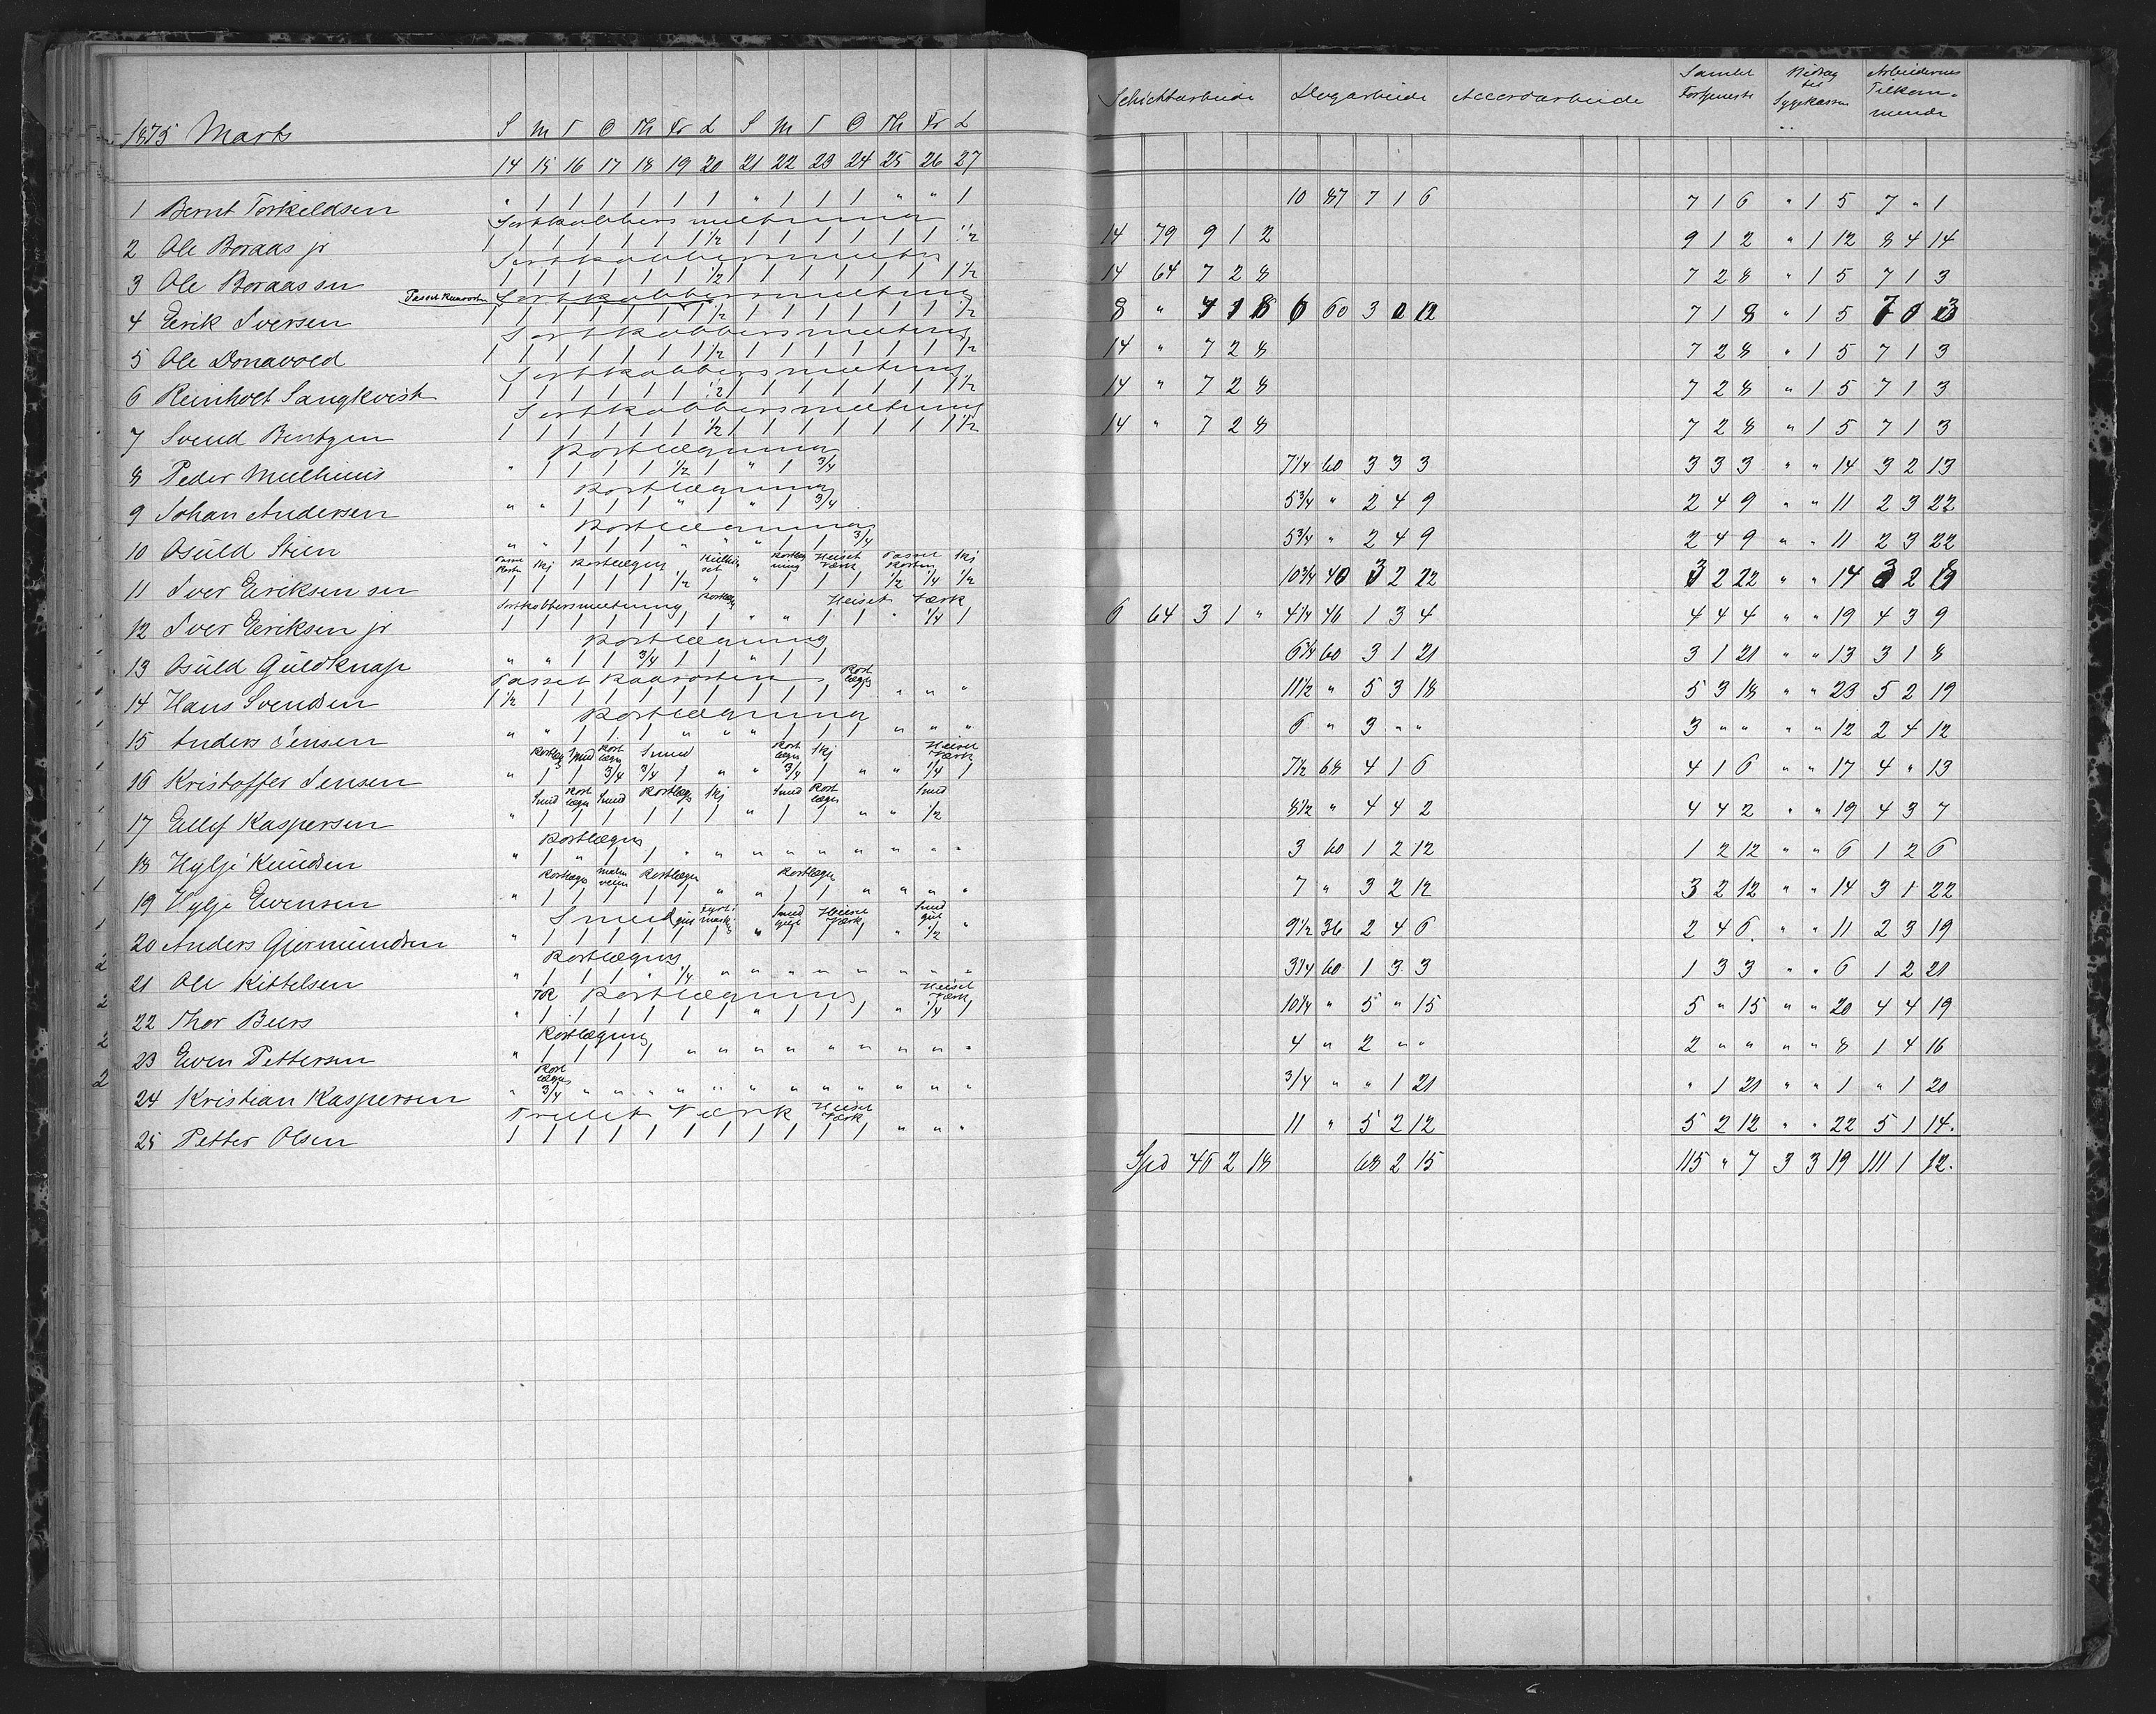 1875 Marts S M T O Th Fr L S M T O Th Fr L
14 15 16 17 18 19 20 21 22 23 24 25 26 27
Schichtarbeide Dagarbeide Accordarbeide Samlet Fortjeneste Bidrag til Sygekassen Arbeidernes Tilkommende
1 Bernt Torkeldsen " 1 1 1 1 1 1 " 1 1 1 " " 1 10 87 7 1 6 7 1 6 " 1 5 7 " 1
Sortkobbersmeltning
2 Ole Boraas jr 1 1 1 1 1 1 1 1/2 1 1 1 1 1 1 1/2 14 79 9 1 2 9 1 2 " 1 12 8 4 14
Sortkobbersmelter
3 Ole Boraas sn 1 1 1 1 1 1 1/2 1 1 1 1 1 1 1 1/2 14 64 7 2 8 7 2 8 " 1 5 7 1 3
Passet Kaarosten Sortkobbersmeltning
4 Eerik Iversen 1 1 1 1 1 1 1 1/2 1 1 1 1 1 1 1/2 8 " 4 1 8 6 60 3 0 12 7 1 8 " 1 5 7 0 3
Sortkobbersmeltning
5 Ole Donavold 1 1 1 1 1 1 1 1/2 1 1 1 1 1 1 1/2 14 " 7 2 8 7 2 8 " 1 5 7 1 3
Sortkobbersmeltning
6 Reinholt Sangkvist 1 1 1 1 1 1 1/2 1 1 1 1 1 1 1 1/2 14 " 7 2 8 7 2 8 " 1 5 7 1 3
Sortkobbersmeltning
7 Svend Bentzen 1 1 1 1 1 1 1/2 1 1 1 1 1 1 1 1/2 14 " 7 2 8 7 2 8 " 1 5 7 1 3
Rostlægning
8 Peder Mulhuus " 1 1 1 1 1/2 1 " 1 3/4 7 1/4 60 3 3 3 3 3 3 " " 14 3 2 13
Rostlægning
9 Johan Andersen " " 1 1 1 " 1 " 1 3/4 5 3/4 " 2 4 9 2 4 9 " " 11 2 3 22
Rostlægning
10 Osuld Stien " " 1 1 1 " " " 1 1 3/4 5 3/4 " 2 4 9 2 4 9 " " 11 2 3 22
Passet Rosten Skj Rostlægn Rostlægning Heiset Værk Passet Rosten Skj
11 Iver Eeriksen sn 1 1 1 1 1 1/2 1 " 1 1 1 1/2 1/4 1/2 10 3/4 40 3 2 22 3 2 22 " " 14 3 2 8
Sortkobbersmeltning Rostlæg Heiset Værk
12 Iver Eeriksen jr 1 1 1 1 1 1 1 " " 1 1 " 1/4 1 6 64 3 1 " 4 1/4 46 1 3 4 4 4 4 " " 19 4 3 9
Rostlægning
13 Osuld Guldknap " " 1 1 3/4 1 1 " 1 1 6 3/4 60 3 1 21 3 1 21 " " 13 3 1 8
Passet Kaarosten Rostlægn
14 Hans Svendsen 1 1/2 1 1 1 1 1 1 1 1 1 1 " " " 11 1/2 " 5 3 18 5 3 18 " " 23 5 2 19
Rostlægning
15 Anders Jensen " " 1 1 1 " " " 1 1 1 " " " 6 " 3 " " 3 " " " " 12 2 4 12
Rostlæg Smed Rostlægn Smed Rostlægn Skj Heiset Værk
16 Kristoffer Jensen " 1 1 3/4 3/4 1 " " 3/4 1 " " 1/4 1 7 1/2 68 4 1 6 4 1 6 " " 17 4 " 13
Smed Rostlægn Smed Rostlægn Skj Smed Rostlægn Smed
17 Ellef Kaspersen " 1 1 1 1 1 1 " 1 1 " " 1/2 8 1/2 " 4 4 2 4 4 2 " " 19 4 3 7
Rostlægn
18 Hylje Knudsen " 1 " 1 1 " " " " " " " " " 3 60 1 2 12 1 2 12 " " 6 1 2 6
Rostlægn Rostlægn Rostlægn
19 Hylje Evensen " 1 1 1 1 1 " " 1 1 " " " " 7 " 3 2 12 3 2 12 " " 14 3 1 22
Smed Smed Heiset Værk Smed
20 Anders Gjermundsen " 1 1 1 1 1 1 " 1 1 1 " 1/2 " 9 1/2 36 2 4 6 2 4 6 " " 11 2 3 19
Rostlægning
21 Ole Kittelsen " 1 1 1 " 1/4 " " " " " " " " 3 1/4 60 1 3 3 1 3 3 " " 6 1 2 21
Rostlægning Heiset Værk
22 Thor Buers " 1 1 1 1 1 1 " 1 1 1 " 1/4 1 10 1/4 " 5 " 15 5 " 15 " " 20 4 4 19
Rostlægning
23 Even Pettersen " 1 1 1 1 " " " " " " " " " 4 " 2 " " 2 " " " " 8 1 4 16
Rostlægn
24 Kristian Kaspersen " 3/4 " " " " " " " " " " " " 3/4 " " 1 21 " 1 21 " " 1 " 1 20
Trillet Værk Heiset Værk
25 Petter Olsen 1 1 1 1 1 1 1 1 1 1 1 " " " 11 " 5 2 12 5 2 12 " " 22 5 1 14.
Spd 46 2 18 68 2 15 115 " 7 3 3 19 111 1 12.